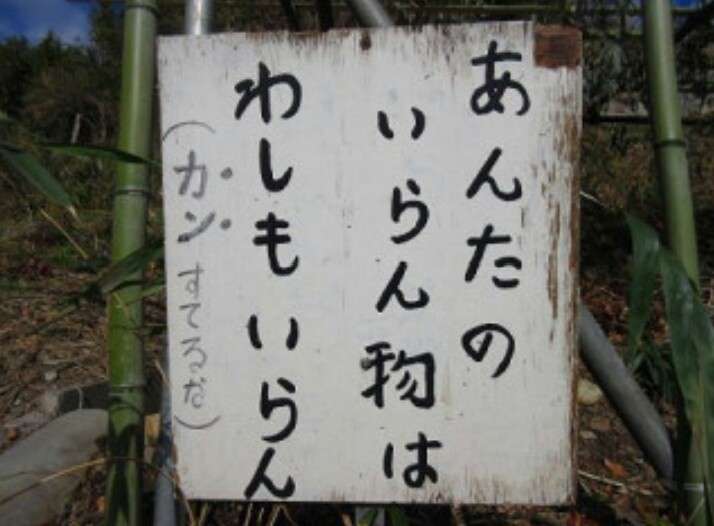 あんたの
いらん物は
わしもいらん
(カンすてるな)